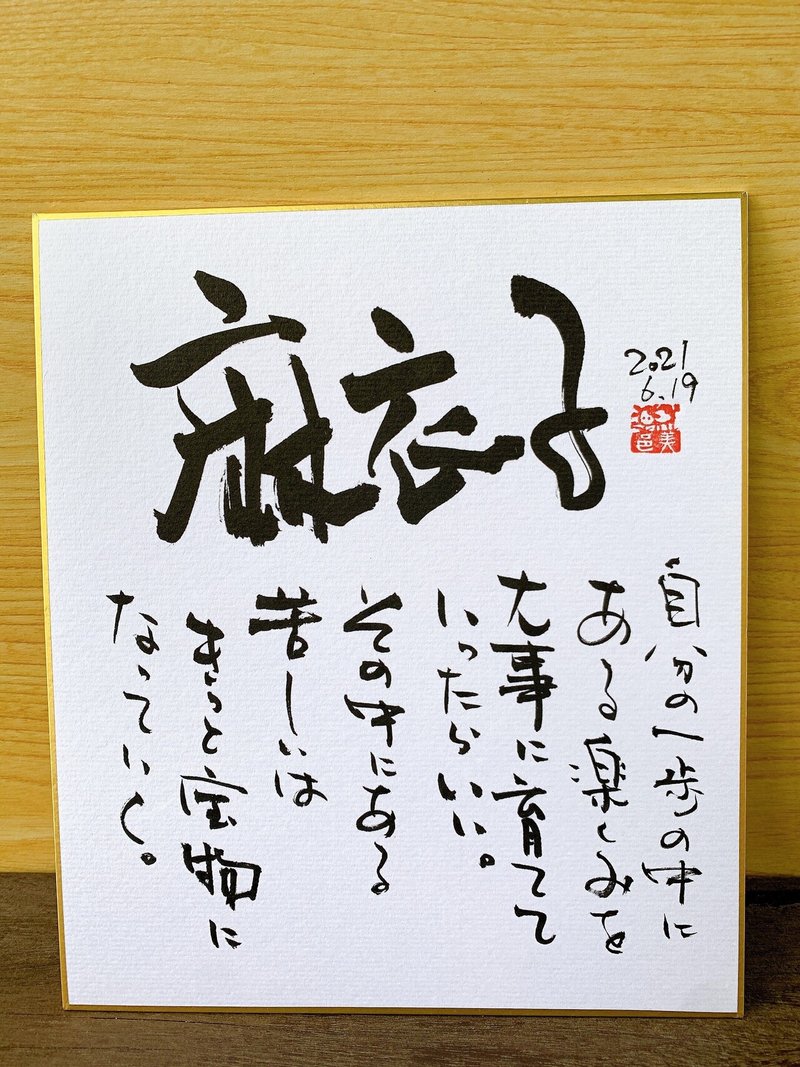 麻衣子
2021
6.19
自分の一歩の中に
ある楽しみを
大事に育てて
いったらいい。
その中にある
苦しいは
きっと宝物に
なっていく。